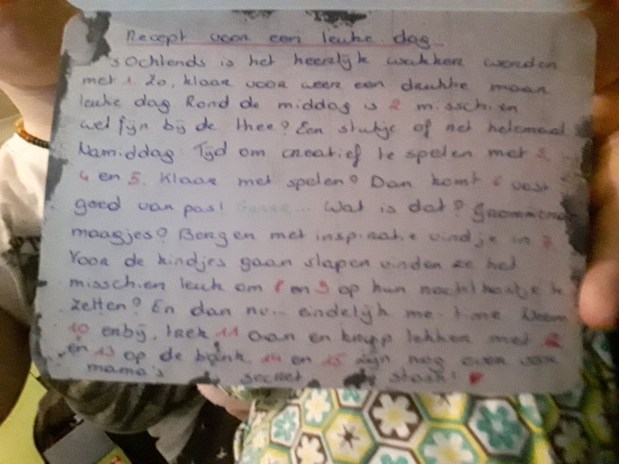 Recept voor een leuke dag
's Ochtends is het heerlijk wakker worden
met 1. Zo, klaar voor weer een drukke maar
leuke dag Rond de middag is 2 misschien
wel fijn bij de thee? Een stukje of het helemaal
Namiddag: Tijd om creatief te spelen met 3,
4 en 5. Klaar met spelen? Dan komt 6 vast
goed van pas! Grrrr... Wat is dat?
maagjes? Bergen met inspiratie vind je in 7
Voor de kindjes gaan slapen vinden ze het
misschien leuk om 8 en 9 op hun nachtkastje te
zetten? En dan nu... eindelijk me-time Neem
10 erbij, trek 11 aan en kruip lekker met 12
en 13 op de bank. 14 en 15 zijn nog even voor
mama's secret stash!